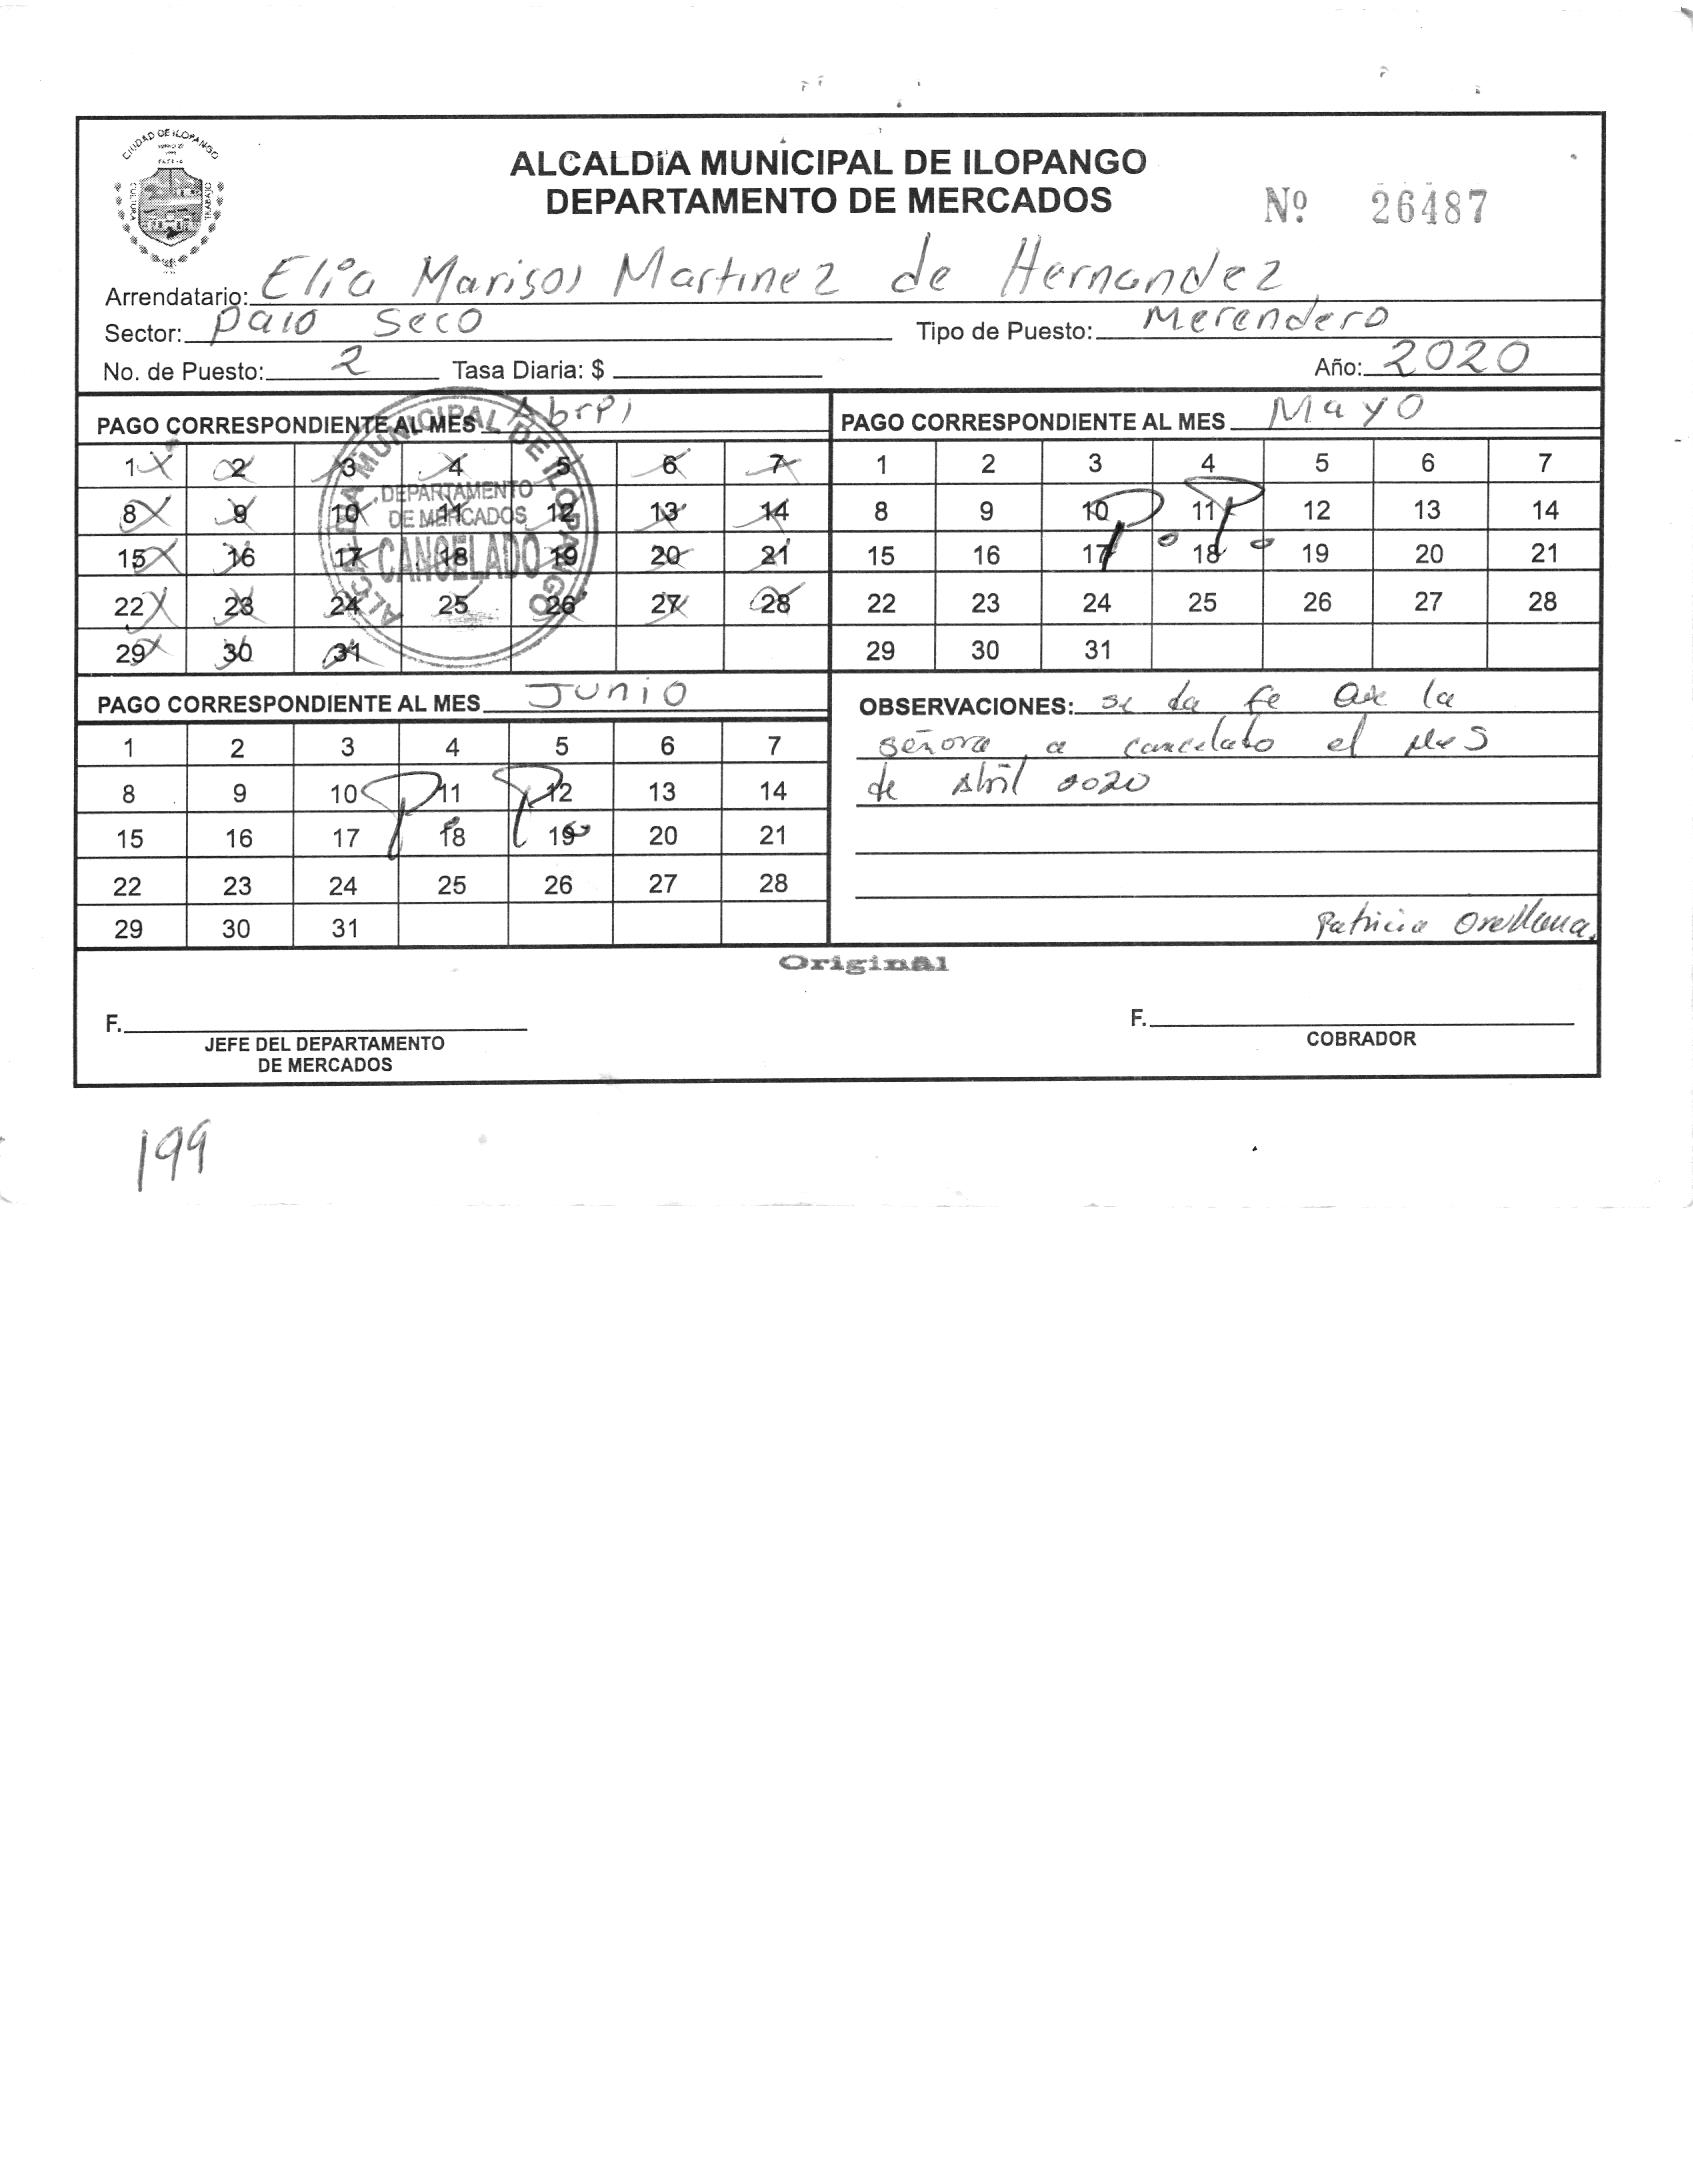 CIUDAD DE ILOPANGO
CULTURA
TRABAJO
ALCALDÍA MUNICIPAL DE ILOPANGO
DEPARTAMENTO DE MERCADOS
Nº 26487
Arrendatario: Elia Marisol Martinez de Hernandez
Sector: paio seco Tipo de Puesto: Merendero
No. de Puesto: 2 Tasa Diaria: $ Año: 2020
PAGO CORRESPONDIENTE AL MES Abrpi
1 2 3 4 5 6 7
8 9 10 11 12 13 14
15 16 17 18 19 20 21
22 23 24 25 26 27 28
29 30 31
ALCALDIA MUNICIPAL DE ILOPANGO
DEPARTAMENTO
DE MERCADOS
CANCELADO
PAGO CORRESPONDIENTE AL MES Mayo
1 2 3 4 5 6 7
8 9 10 11 12 13 14
15 16 17 18 19 20 21
22 23 24 25 26 27 28
29 30 31
P. P.
PAGO CORRESPONDIENTE AL MES Junio
1 2 3 4 5 6 7
8 9 10 11 12 13 14
15 16 17 18 19 20 21
22 23 24 25 26 27 28
29 30 31
P. P.
OBSERVACIONES: se da fe que la
señora a cancelado el mes
de Abril 2020
Patricia Orellana.
Original
F.
JEFE DEL DEPARTAMENTO
DE MERCADOS
F.
COBRADOR
199